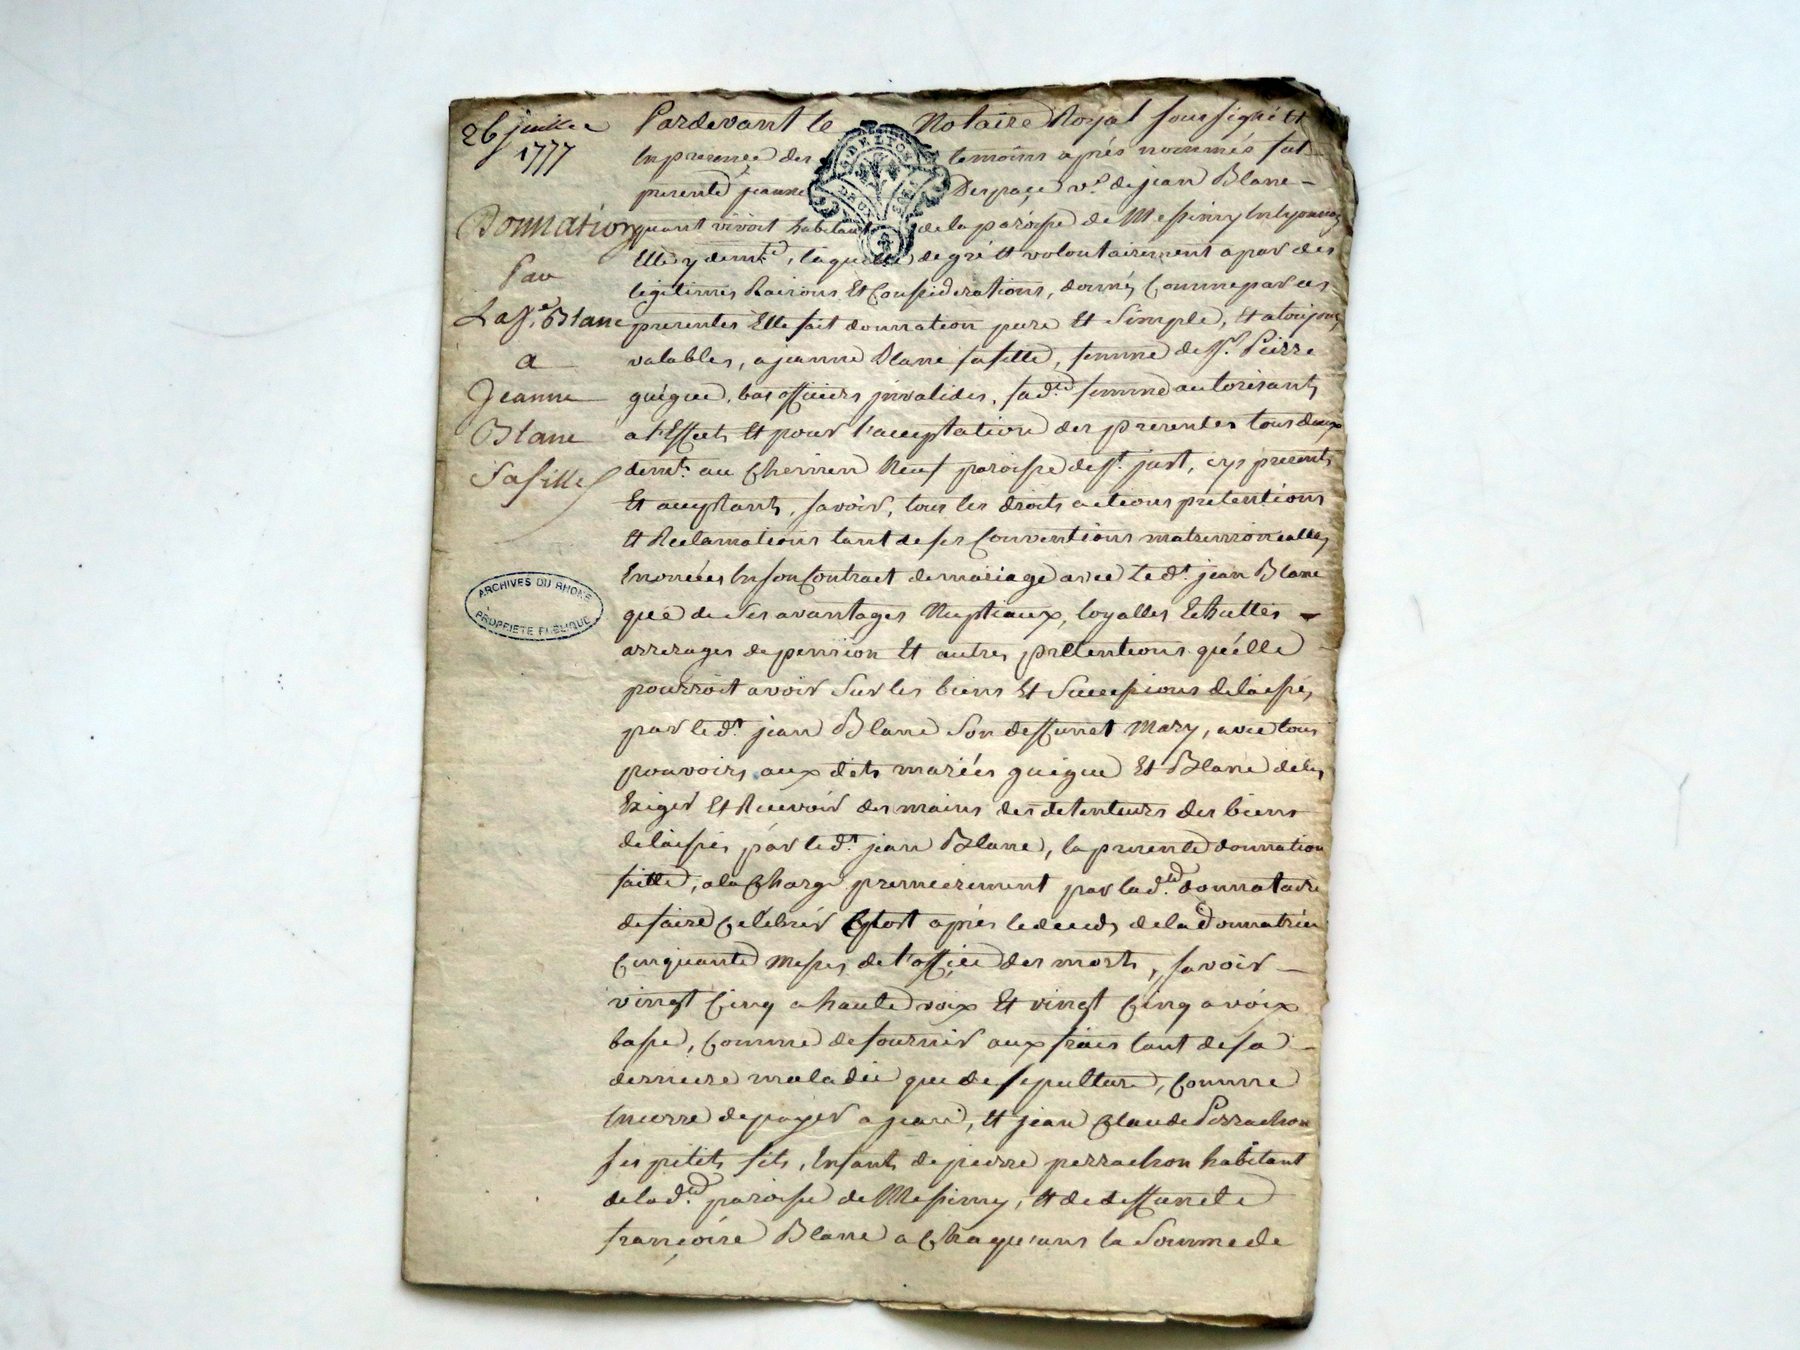 26 juillet
1777
Donnation
Par
La Ve Blanc
a
Jeanne
Blanc
Sa fille
ARCHIVES DU RHONE
PROPRIETE PUBLIQUE
DE LYON
Pardevant le Notaire Royal soussigné Et
En presence des temoins après nommés fut
presente jeanne Despaye ve. de jean Blanc
quant vivoit habitant de la paroisse de Messimy En lyonnois
Elle y demte., laquelle de gré Et volontairement a par des
legitimes Raisons Et Considerations, donné, Comme par ces
presentes Elle fait donnation pure Et Simple, Et a toujours
valables, a jeanne Blanc sa fille, femme de Sr. Pierre
guigue, bas officiers jnvalides, sa dte. femme autorisant,
a l'Effect, Et pour l'acceptation des presentes tous deux
demts. au Chemin Neuf paroisse de St. just, cys presents
Et acceptants, savoir, tous les droits actions pretentions
Et Reclamations tant de ses Conventions matrimonialles,
Enoncées En son Contract de mariage avec le dt. jean Blanc
que de Ses avantages Nuptiaux, loyalles Echuttes
arrerages de pension Et autres pretentions qu'elle
pourroit avoir Sur les biens Et Successions delaissés,
par le dt. jean Blanc Son deffunct Mary, avec tous
pouvoirs aux dits mariés guigue Et Blanc de les
Exiger Et Recevoir des mains des detenteurs des biens
delaissés par le dt. jean Blanc, la presente donnation
faitte, a la Charge premierement par la dte. donnataire
de faire Celebrer après le deceds de la Donnatrice
Cinquante Messes de l'office des morts, savoir
vingt Cinq a haute voix Et vingt Cinq a voix
basse, Comme de fournir aux frais tant de sa
derniere maladie que de sepulture, Comme
Encorre de payer a jean, Et jean Claude Perrachon
ses petits fils, Enfants de pierre perrachon habitant
de la dte. paroisse de Messimy, Et de deffuncte
françoise Blanc a Chaq'uns la Somme de